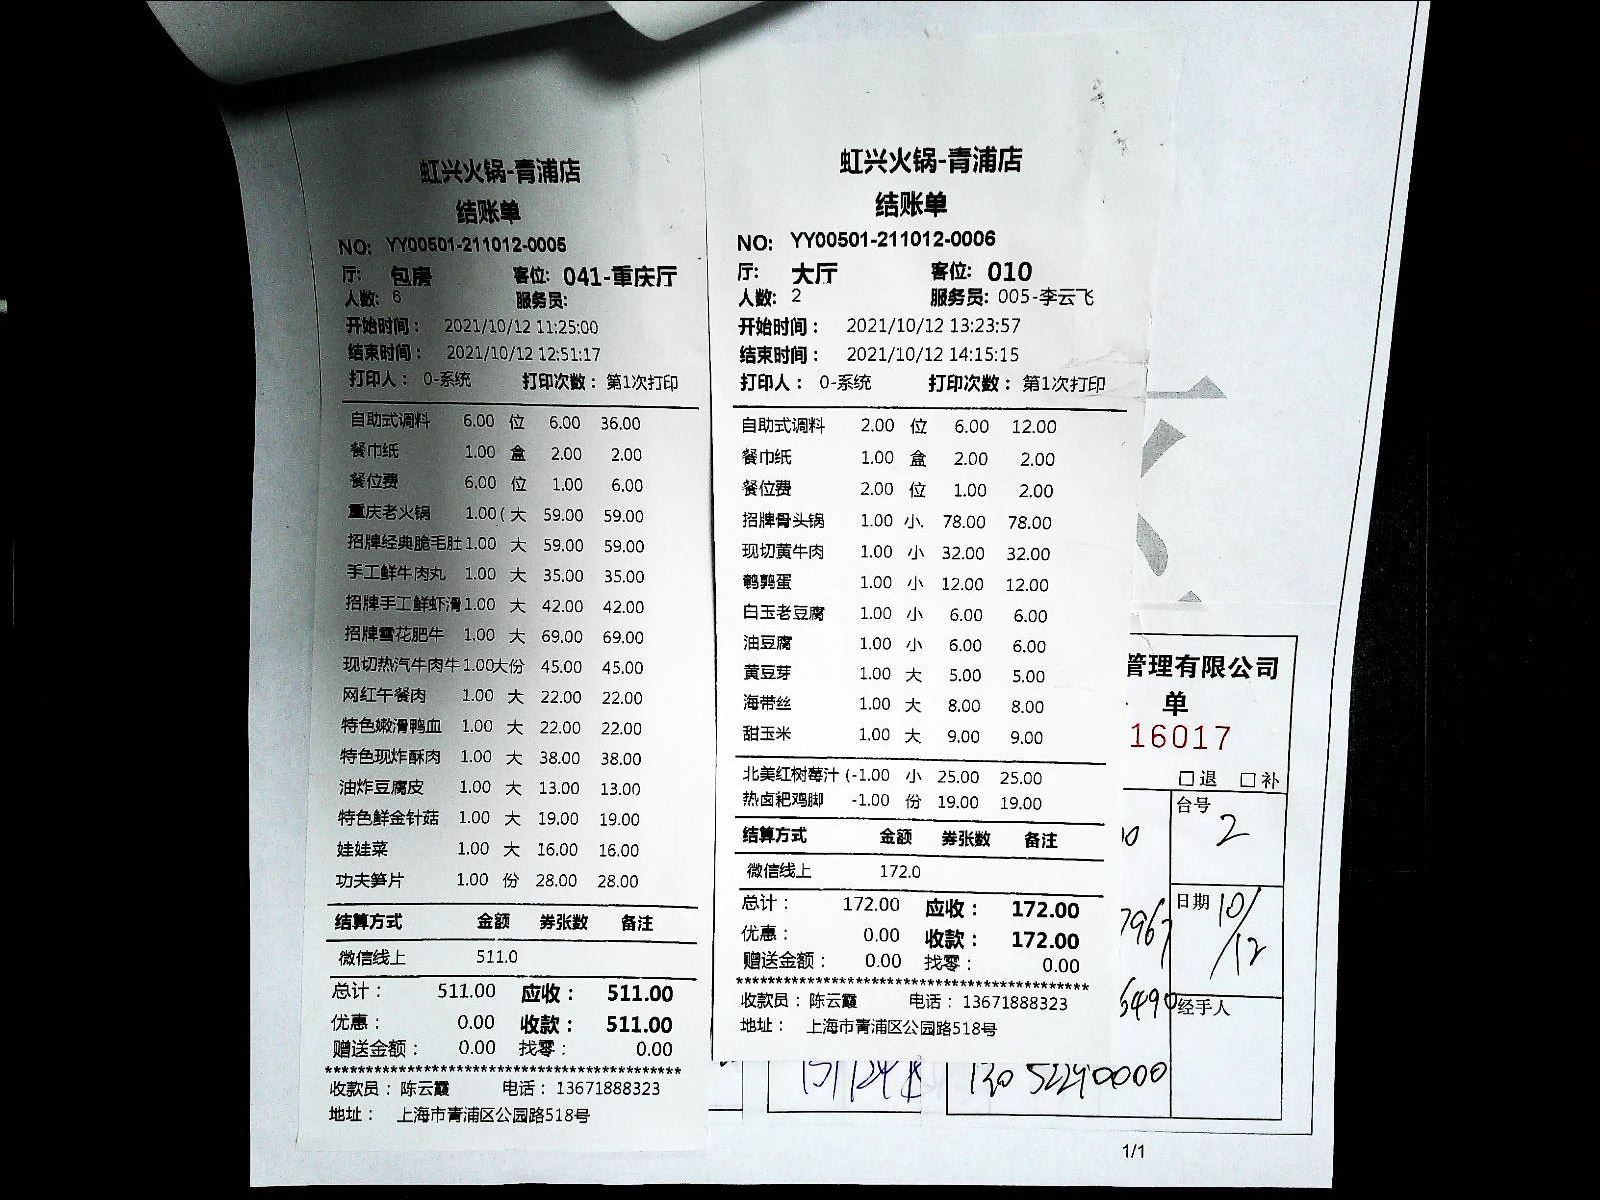 虹兴火锅-青浦店
结账单
NO: YY00501-211012-0005
厅: 包房 客位: 041-重庆厅
人数: 6 服务员:
开始时间: 2021/10/12 11:25:00
结束时间: 2021/10/12 12:51:17
打印人: 0-系统 打印次数: 第1次打印
自助式调料 6.00 位 6.00 36.00
餐巾纸 1.00 盒 2.00 2.00
餐位费 6.00 位 1.00 6.00
重庆老火锅 1.00( 大 59.00 59.00
招牌经典脆毛肚 1.00 大 59.00 59.00
手工鲜牛肉丸 1.00 大 35.00 35.00
招牌手工鲜虾滑 1.00 大 42.00 42.00
招牌雪花肥牛 1.00 大 69.00 69.00
现切热汽牛肉牛 1.00大份 45.00 45.00
网红午餐肉 1.00 大 22.00 22.00
特色嫩滑鸭血 1.00 大 22.00 22.00
特色现炸酥肉 1.00 大 38.00 38.00
油炸豆腐皮 1.00 大 13.00 13.00
特色鲜金针菇 1.00 大 19.00 19.00
娃娃菜 1.00 大 16.00 16.00
功夫笋片 1.00 份 28.00 28.00
结算方式 金额 券张数 备注
微信线上 511.0
总计: 511.00 应收: 511.00
优惠: 0.00 收款: 511.00
赠送金额: 0.00 找零: 0.00
******************************************
收款员: 陈云霞 电话: 13671888323
地址: 上海市青浦区公园路518号
虹兴火锅-青浦店
结账单
NO: YY00501-211012-0006
厅: 大厅 客位: 010
人数: 2 服务员: 005-李云飞
开始时间: 2021/10/12 13:23:57
结束时间: 2021/10/12 14:15:15
打印人: 0-系统 打印次数: 第1次打印
自助式调料 2.00 位 6.00 12.00
餐巾纸 1.00 盒 2.00 2.00
餐位费 2.00 位 1.00 2.00
招牌骨头锅 1.00 小. 78.00 78.00
现切黄牛肉 1.00 小 32.00 32.00
鹌鹑蛋 1.00 小 12.00 12.00
白玉老豆腐 1.00 小 6.00 6.00
油豆腐 1.00 小 6.00 6.00
黄豆芽 1.00 大 5.00 5.00
海带丝 1.00 大 8.00 8.00
甜玉米 1.00 大 9.00 9.00
北美红树莓汁 (-1.00 小 25.00 25.00
热卤耙鸡脚 -1.00 份 19.00 19.00
结算方式 金额 券张数 备注
微信线上 172.0
总计: 172.00 应收: 172.00
优惠: 0.00 收款: 172.00
赠送金额: 0.00 找零: 0.00
******************************************
收款员: 陈云霞 电话: 13671888323
地址: 上海市青浦区公园路518号
管理有限公司
单
16017
□退 □补
台号
2
日期 10/12
7967
经手人
1/1